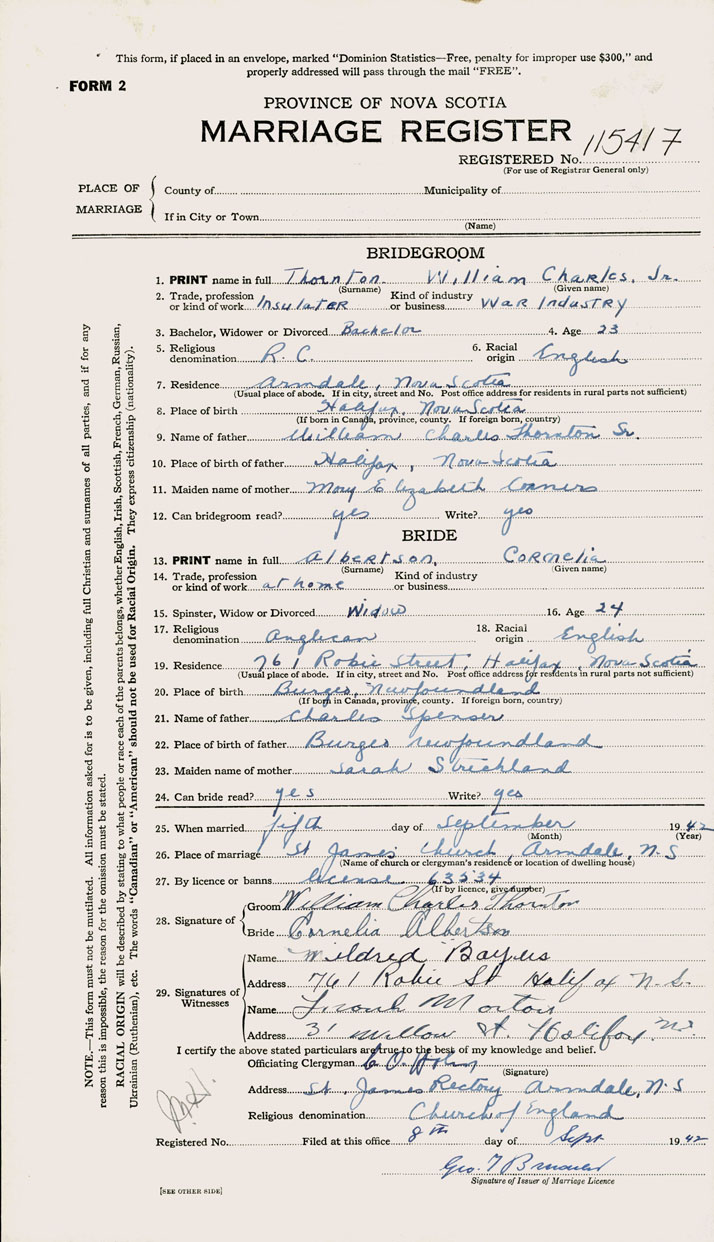 This form, if placed in an envelope, marked "Dominion Statistics—Free, penalty for improper use $300," and
properly addressed will pass through the mail "FREE".
FORM 2
PROVINCE OF NOVA SCOTIA
MARRIAGE REGISTER
115417
REGISTERED No.
(For use of Registrar General only)
PLACE OF MARRIAGE
County of Municipality of
If in City or Town
(Name)
BRIDEGROOM
1. PRINT name in full Thornton William Charles, Jr.
(Surname) (Given name)
2. Trade, profession or kind of work Insulater Kind of industry or business War Industry
3. Bachelor, Widower or Divorced Bachelor 4. Age 23
5. Religious denomination R. C. 6. Racial origin English
7. Residence Armdale, Nova Scotia
(Usual place of abode. If in city, street and No. Post office address for residents in rural parts not sufficient)
8. Place of birth Halifax, Nova Scotia
(If born in Canada, province, county. If foreign born, country)
9. Name of father William Charles Thornton Sr.
10. Place of birth of father Halifax, Nova Scotia
11. Maiden name of mother Mary Elizabeth Conners
12. Can bridegroom read? yes Write? yes
BRIDE
13. PRINT name in full Albertson, Cornelia
(Surname) (Given name)
14. Trade, profession or kind of work at home Kind of industry or business
15. Spinster, Widow or Divorced Widow 16. Age 24
17. Religious denomination Anglican 18. Racial origin English
19. Residence 761 Robie Street, Halifax, Nova Scotia
(Usual place of abode. If in city, street and No. Post office address for residents in rural parts not sufficient)
20. Place of birth Burgeo, Newfoundland
(If born in Canada, province, county. If foreign born, country)
21. Name of father Charles Spenser
22. Place of birth of father Burgeo Newfoundland
23. Maiden name of mother Sarah Strickland
24. Can bride read? yes Write? yes
25. When married fifth day of September 1942
(Month) (Year)
26. Place of marriage St James Church, Armdale, N.S
(Name of church or clergyman's residence or location of dwelling house)
27. By licence or banns license 63534
(If by licence, give number)
28. Signature of
Groom William Charles Thornton
Bride Cornelia Albertson
29. Signatures of Witnesses
Name Mildred
Address 761 Robie St Halifax N.S.
Name Morton
Address 31 Willow St. Halifax N.S.
I certify the above stated particulars are true to the best of my knowledge and belief.
Officiating Clergyman
(Signature)
Address St. James Rectory Armdale, N.S
Religious denomination Church of England
Registered No. Filed at this office 8th day of Sept 1942
Geo.
Signature of Issuer of Marriage Licence
[SEE OTHER SIDE]
NOTE.—This form must not be mutilated. All information asked for is to be given, including full Christian and surnames of all parties, and if for any
reason this is impossible, the reason for the omission must be stated.
RACIAL ORIGIN will be described by stating to what people or race each of the parents belongs, whether English, Irish, Scottish, French, German, Russian,
Ukrainian (Ruthenian), etc. The words "Canadian" or "American" should not be used for Racial Origin. They express citizenship (nationality).